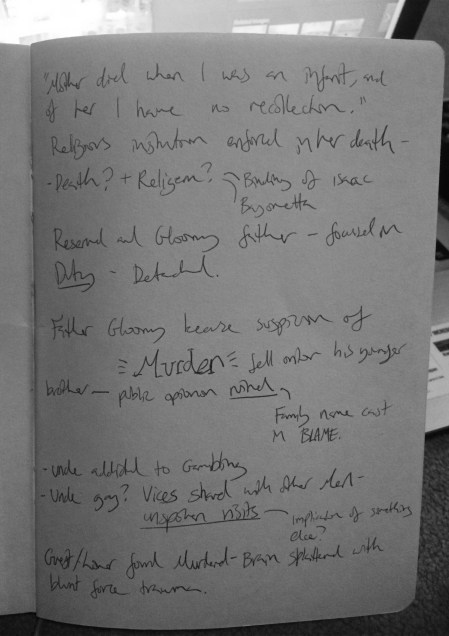 "Mother died when I was an infant, and
of her I have no recollection."
Religious institution enforced in her death -
- Death? + Religion? Binding of Isaac
Bayonetta
Reserved and Gloomy father - focused on
Duty - Detached.
Father Gloomy because suspicion of
Murder fell onto his younger
brother - public opinion ruined
Family name cast
in BLAME.
- uncle addicted to Gambling
- Uncle gay? Vices shared with other Men -
unspoken visits - implication of something
else?
Guest/Lover found Murdered - Brain splattered with
blunt force trauma.